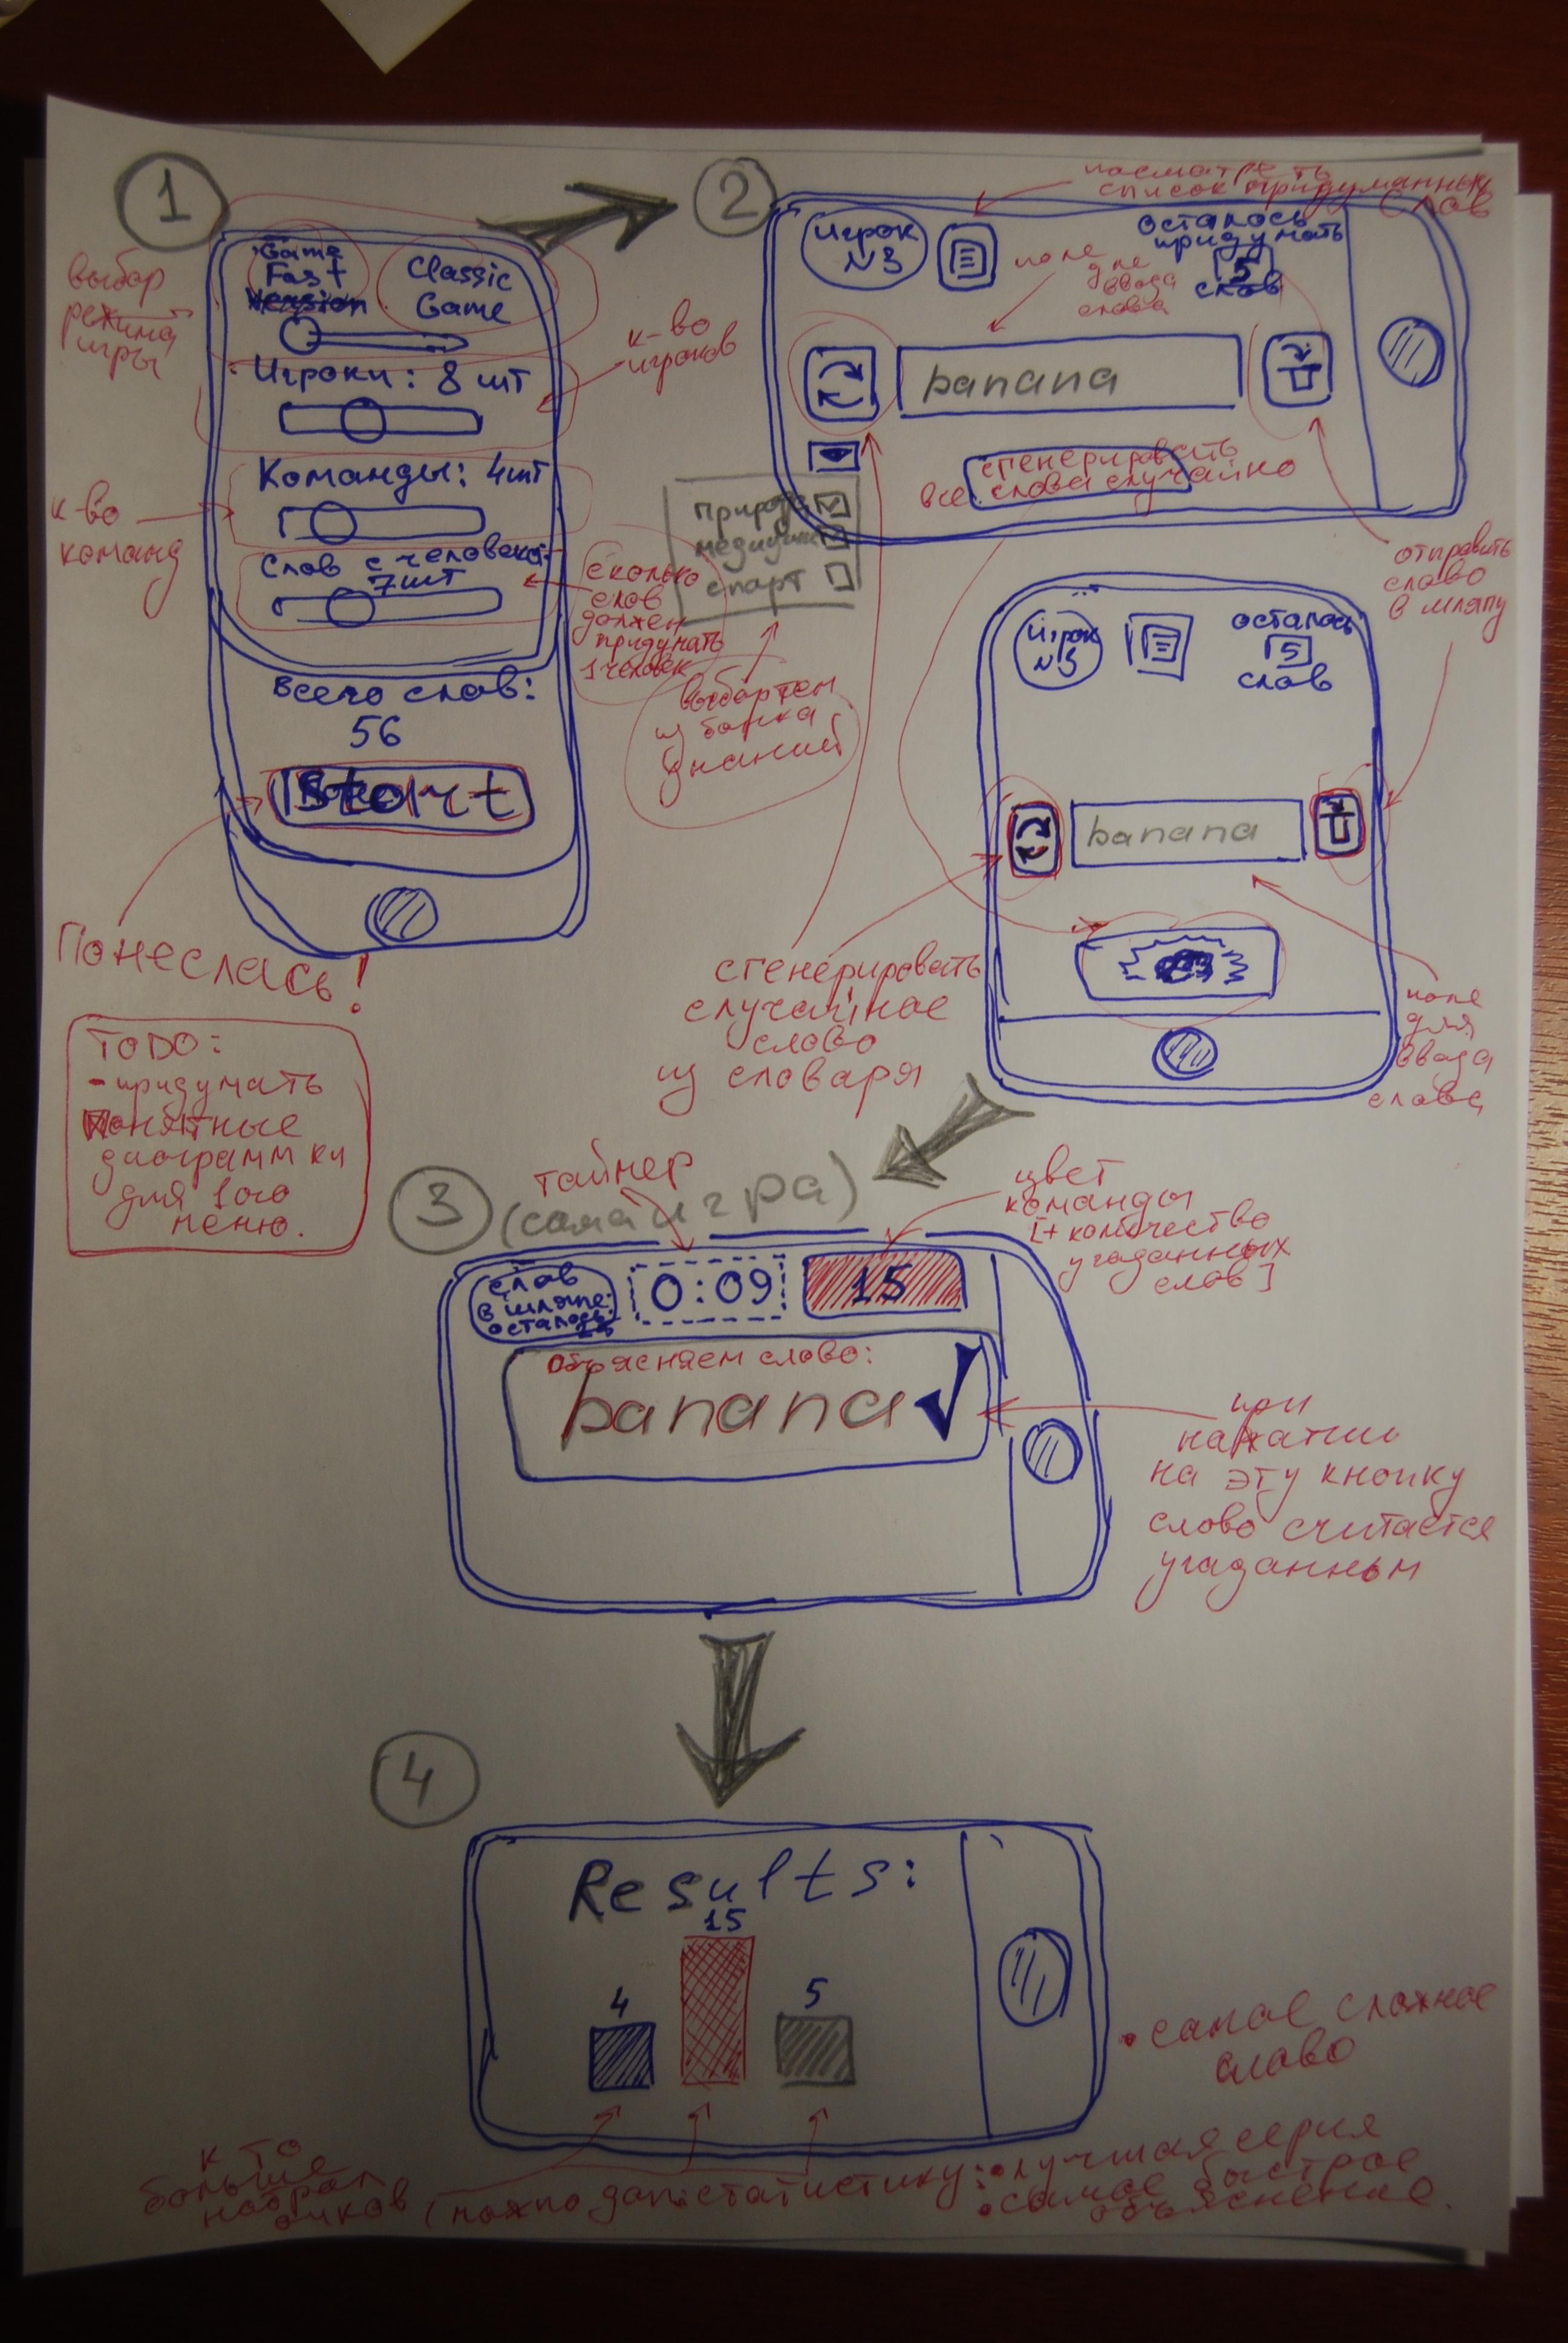 1
Game
Fast
Version
Classic
Game
выбор
режима
игры
Игроки: 8 шт
к-во
игроков
Команды: 4шт
к-во
команд
Слов с человека:
7шт
сколько
слов
должен
придумать
1 человек
Всего слов:
56
Start
Понеслась!
TODO:
- придумать
понятные
диаграммки
для 1ого
меню.
2
посмотреть
список придуманных
слов
Игрок
№3
осталось
придумать
5
слов
поле
для
ввода
слова
banana
сгенерировать
все слова случайно
природа
медицина
спорт
из банка
знаний
отправить
слово
в шляпу
Игрок
№3
осталось
5
слов
banana
сгенерировать
случайное
слово
из словаря
поле
для
ввода
слова
3
(сама игра)
таймер
цвет
команды
[+ количество
угаданных
слов]
слов
в шляпе
осталось:
0:09
15
Объясняем слово:
banana
при
нажатии
на эту кнопку
слово считается
угаданным
4
Results:
15
4
5
• самое сложное
слово
кто
больше
набрал
очков
(можно доп. статистику:
• лучшая серия
• самое быстрое
объяснение.